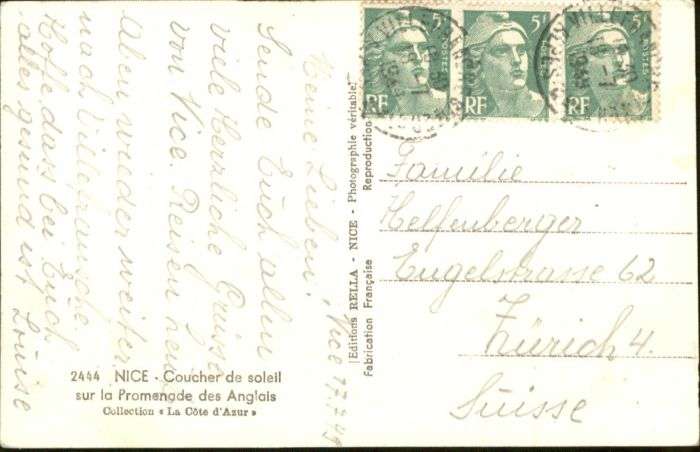 Nice 17.7.49
Meine Lieben!
Sende Euch allen
viele Herzliche Grüsse
von Nice. Reisen heute
Aben wieder weiter
nach
Hoffe dass bei Euch
alles gesund ist Louise
2444 NICE - Coucher de soleil
sur la Promenade des Anglais
Collection « La Côte d'Azur »
Editions RELLA - NICE - Photographie véritable
Fabrication Française Reproduction
5F
POSTES
RF
5F
RF
5F
POSTES
RF
Familie
Helfenberger
Engelstrasse 62
Zürich 4.
Suisse